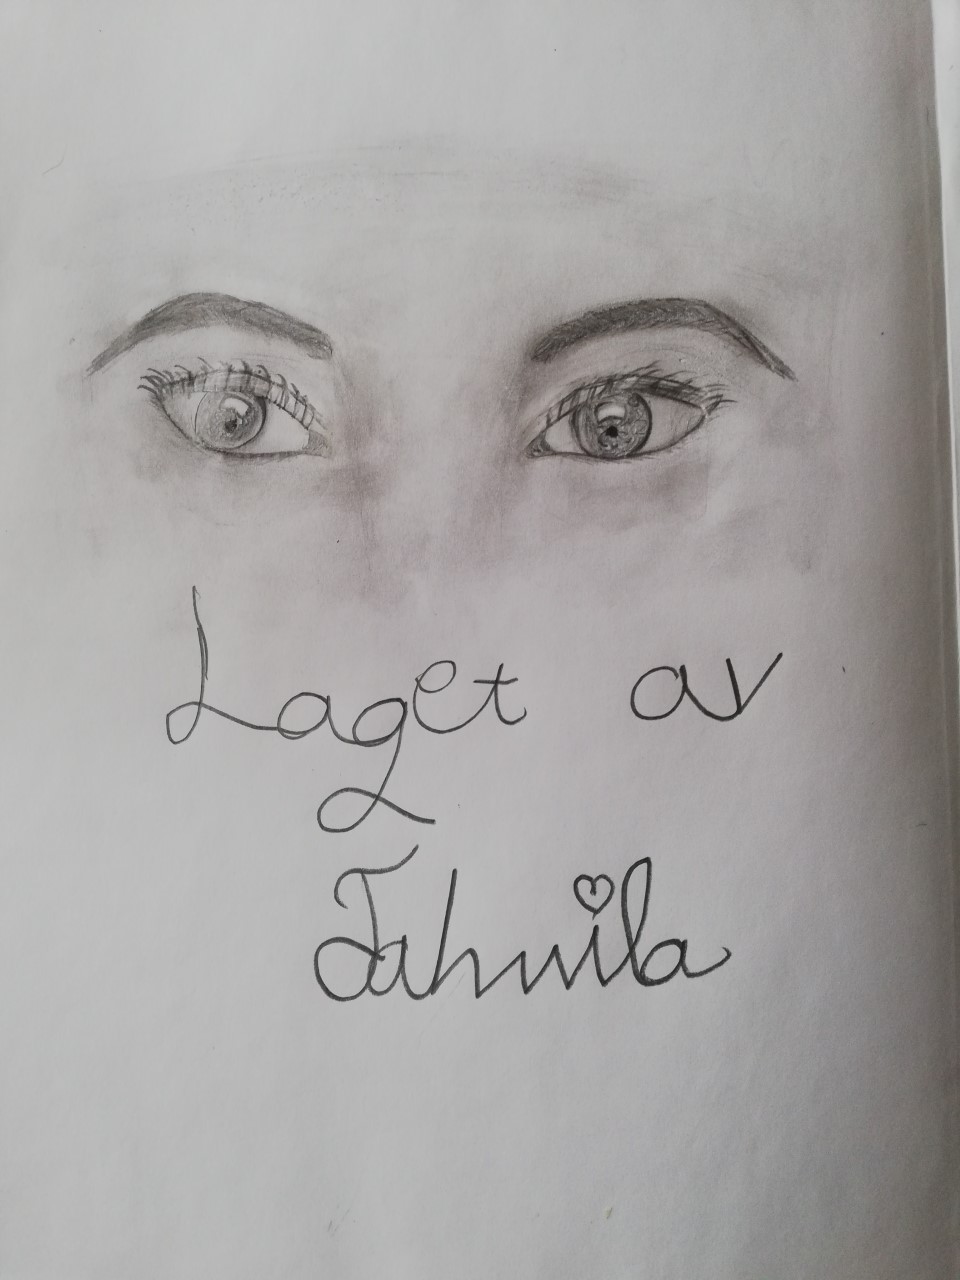 Laget av
Tahmila